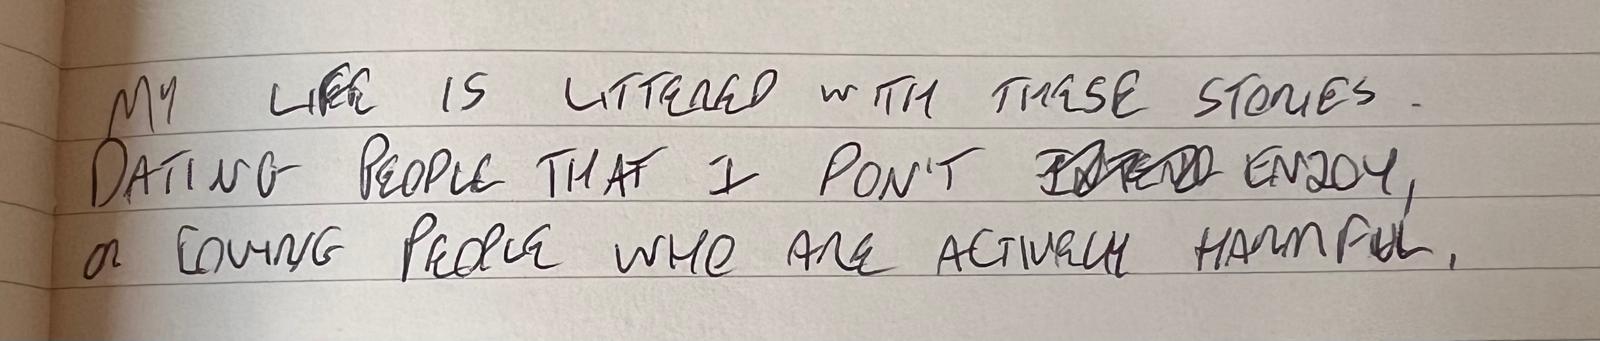 MY LIFE IS LITTERED WITH THESE STORIES.
DATING PEOPLE THAT I DON'T ENJOY,
OR LOVING PEOPLE WHO ARE ACTIVELY HARMFUL.